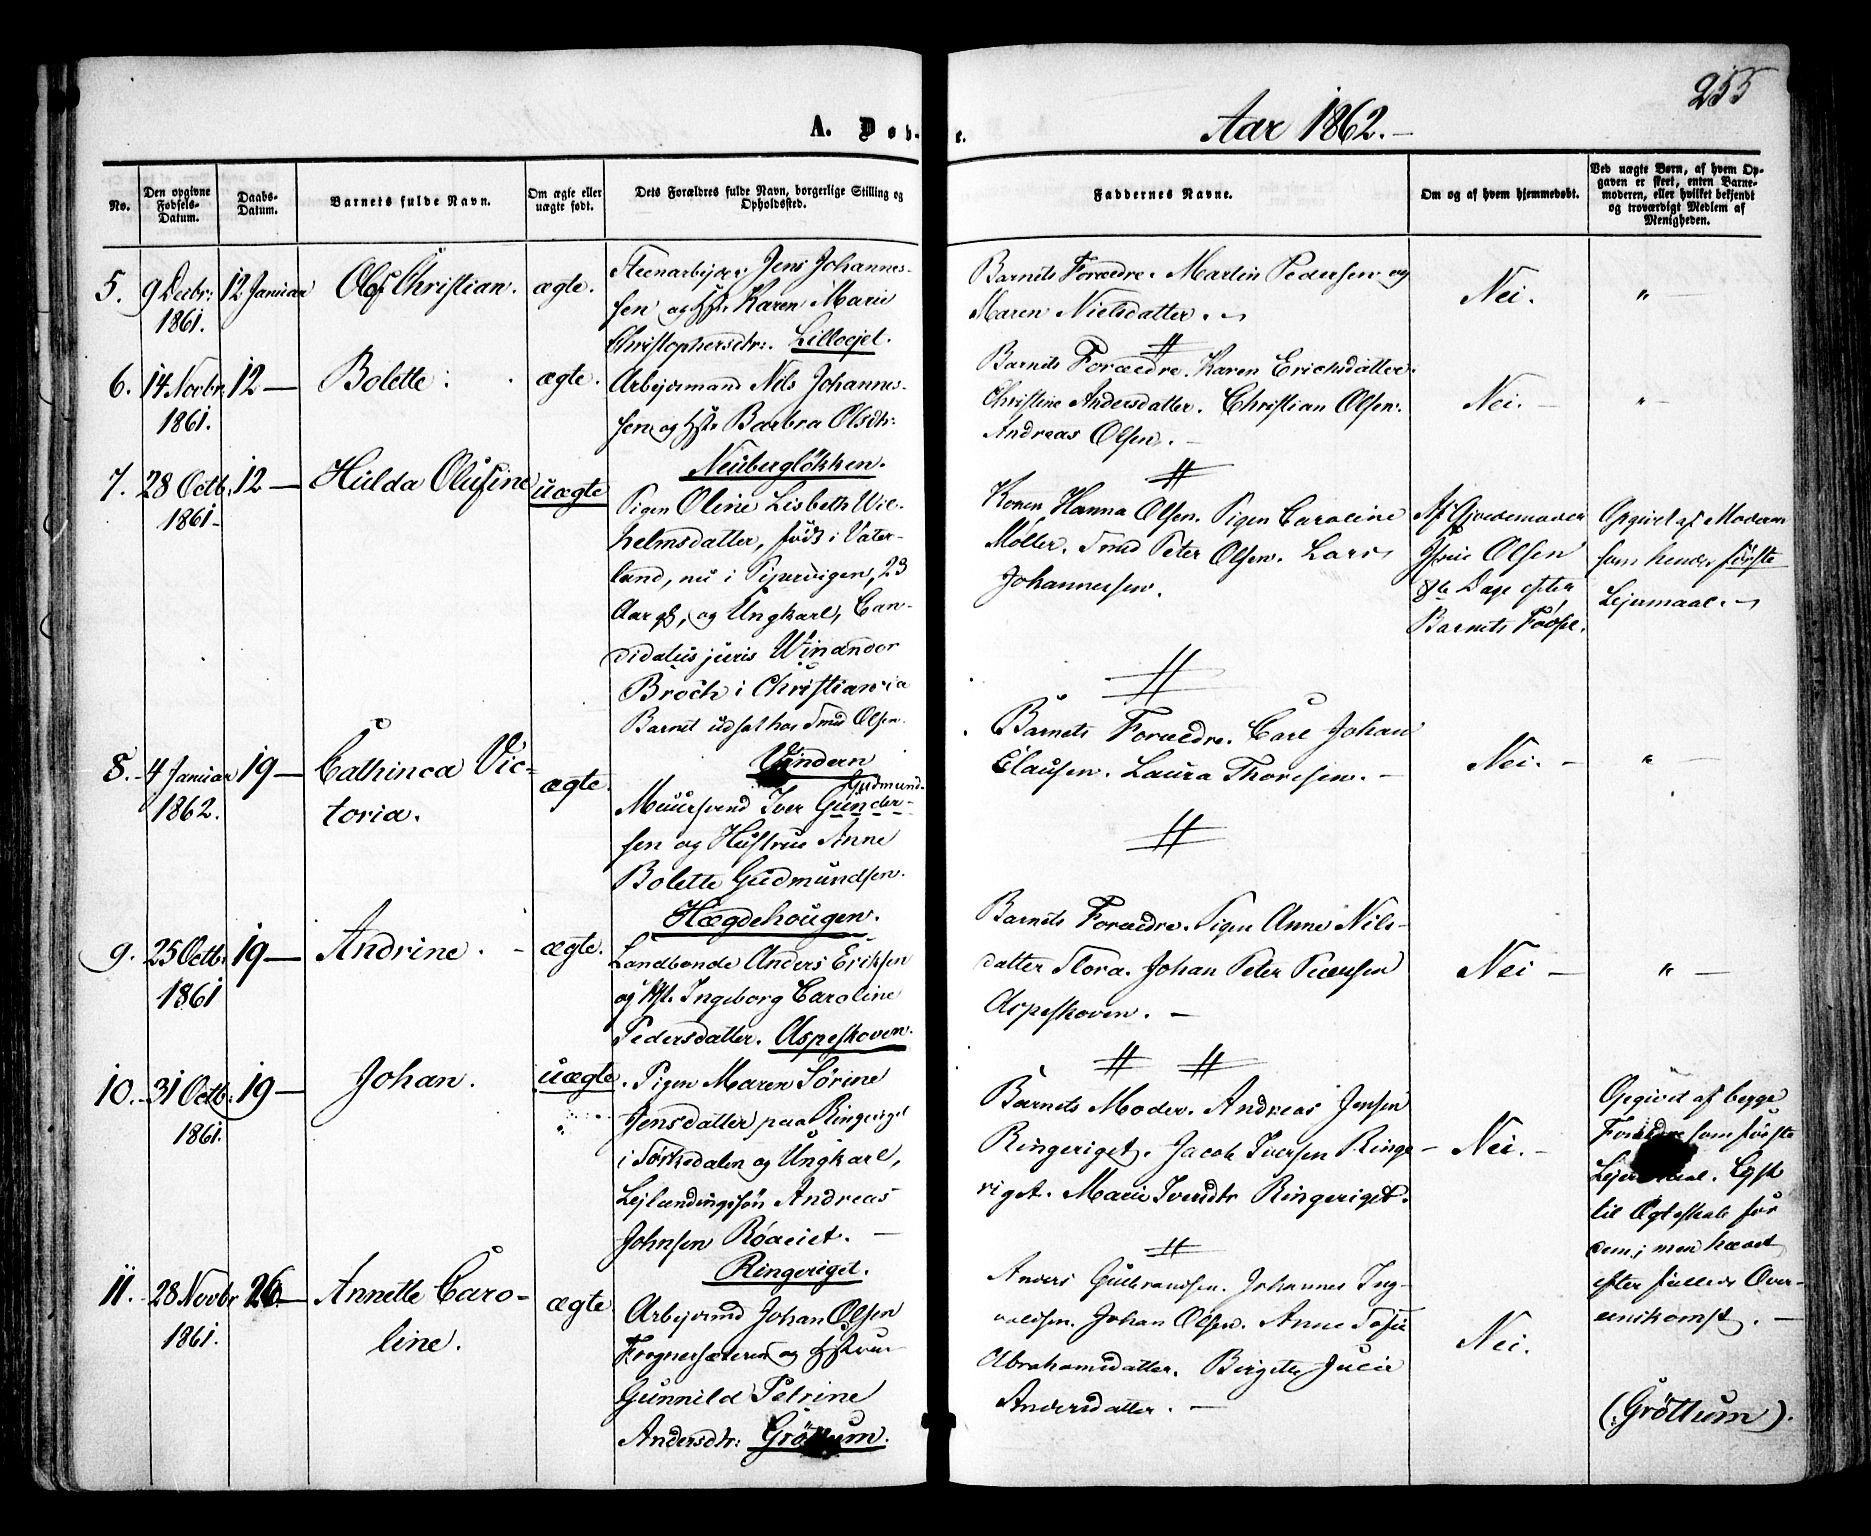 255
A. Døb- e. Aar 1862.-
No.
Den opgivne Fødsels-Datum.
Daabs-Datum.
Barnets fulde Navn.
Om ægte eller uægte født.
Dets Forældres fulde Navn, borgerlige Stilling og Opholdssted.
Faddernes Navne.
Om og af hvem hjemmedøbt.
Ved uægte Børn, af hvem Opgaven er skeet, enten Barnemoderen, eller hvilket bekjendt og troværdigt Medlem af Menigheden.
5. 9 Decbr: 1861. 12 Januar Olaf Christian. ægte.
Steenarbejder Jens Johannes-
sen og Hst. Karen Marie
Christophersdtr:. Lillogjet.
Barnets Forældre. Martin Pedersen og
Maren Nielsdatter.
Nei. "
6. 14 Novbr: 1861. 12 — Bolette. ægte.
Arbejdsmand Nils Johannes-
sen og Hst. Barbra Olsdtr:
Neuberglökken.
Barnets Forældre. Karen Ericksdatter.
Christine Andersdatter. Christian Olsen.
Andreas Olsen. -
Nei. - "
7. 28 Octb. 1861- 12 — Hulda Olufine uægte
Pigen Oline Lisbeth Wil-
helmsdatter, født i Vater-
land, nu i Pipervigen, 23
Aar gl, og Ungkarl, Can-
didatus juris Winandor
Broch i Christiania
Barnet udsat hos Smed Olsen.
Vindern
Konen Hanna Olsen. Pigen Caroline
Möller. Smed Peter Olsen. Lars
Johannessen.
Af Gjordemoder
Olsen
8te Dage efter
Barnets Födsel.
Opgivet af Moderen
som hendes første
Lejermaal.
8. 4 Januar 1862. 19 — Cathinca Vic-
toria. ægte.
Muursvend Iver Gunder- Gudmund-
sen og Hustrue Anne
Bolette Gudmundsen.
Hægdehougen.
Barnets Forældre. Carl Johan
Clausen. Laura Thoresen. -
Nei. - "
9. 25 Octb. 1861 19 — Andrine. - ægte.
Landbonde Anders Eriksen
og Hst. Ingeborg Caroline
Pedersdatter. Aspeskoven.
Barnets Forældre. Pigen Anne Nils-
datter Flora. Johan Peter
Aspeskoven. -
Nei - "
10. 31 Octb: 1861. 19 — Johan. uægte.
Pigen Maren Sörine
Jensdatter paa Ringeriget
i Sörkedalen og Ungkarl,
Lejlændingssön Andreas
Johnsen
Ringeriget.
Barnets Moder. Andreas Jensen
Ringeriget. Jacob Iversen Ringe-
riget. Marie Iversdtr Ringeriget.
Nei. -
Opgivet af begge
Forældre som første
Lejermaal. Lyst
til Ægteskab for
dem, men hævet
efter fælleds Over-
enskomst. -
11. 28 Novbr 1861. 26 — Annette Caro-
line. ægte
Arbejdsmd Johan Olsen
Frognersæteren og Hstrue
Gunnild Petrine
Andersdtr: Gröttum.
Anders Gulbrandsen. Johannes Ing-
valdsen. Johan Olsen. Anne Sofie
Abrahamsdatter. Birgitte Julie
Andersdatter. -
Nei.
(Gröttum).